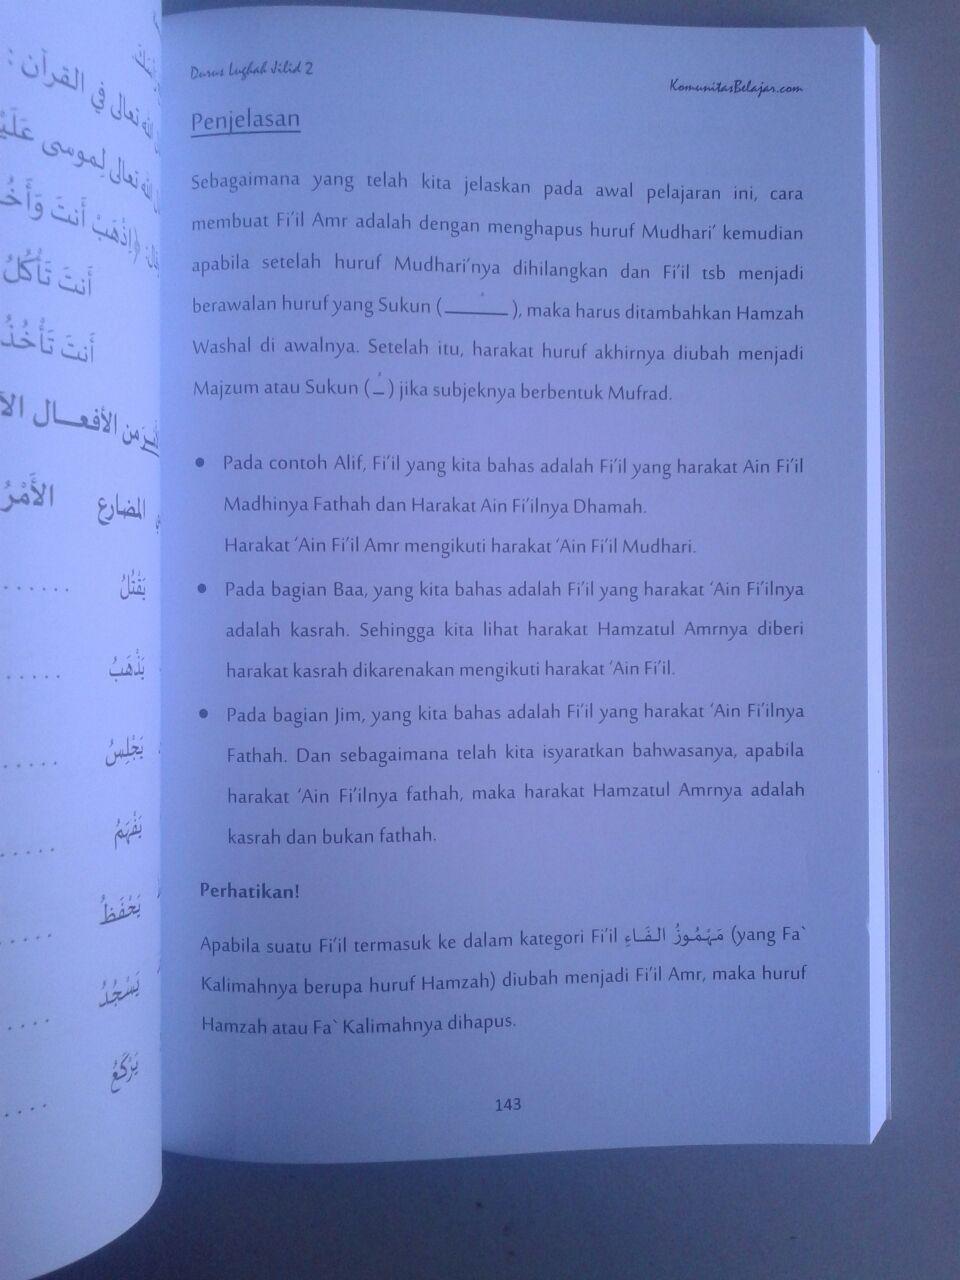 الله تعالى في القرآن :
الله تعالى لموسى
﴿اِذْهَبْ أَنتَ
أَنتَ تَأْكُلُ
أَنتَ تَأْخُذُ
من الأفعال
المضارع الأَمْرُ
يَقْتُلُ ......
يَذْهَبُ .....
يَجْلِسُ .....
يَفْهَمُ .....
يَحْفَظُ .....
يَسْجُدُ ....
يَرْكَعُ ....
Durus Lughah Jilid 2
KomunitasBelajar.com
Penjelasan
Sebagaimana yang telah kita jelaskan pada awal pelajaran ini, cara
membuat Fi'il Amr adalah dengan menghapus huruf Mudhari' kemudian
apabila setelah huruf Mudhari'nya dihilangkan dan Fi'il tsb menjadi
berawalan huruf yang Sukun (ـــْـــ), maka harus ditambahkan Hamzah
Washal di awalnya. Setelah itu, harakat huruf akhirnya diubah menjadi
Majzum atau Sukun (ـْ) jika subjeknya berbentuk Mufrad.
• Pada contoh Alif, Fi'il yang kita bahas adalah Fi'il yang harakat Ain Fi'il
Madhinya Fathah dan Harakat Ain Fi'ilnya Dhamah.
Harakat 'Ain Fi'il Amr mengikuti harakat 'Ain Fi'il Mudhari.
• Pada bagian Baa, yang kita bahas adalah Fi'il yang harakat 'Ain Fi'ilnya
adalah kasrah. Sehingga kita lihat harakat Hamzatul Amrnya diberi
harakat kasrah dikarenakan mengikuti harakat 'Ain Fi'il.
• Pada bagian Jim, yang kita bahas adalah Fi'il yang harakat 'Ain Fi'ilnya
Fathah. Dan sebagaimana telah kita isyaratkan bahwasanya, apabila
harakat 'Ain Fi'ilnya fathah, maka harakat Hamzatul Amrnya adalah
kasrah dan bukan fathah.
Perhatikan!
Apabila suatu Fi'il termasuk ke dalam kategori Fi'il مَهْمُوزُ الفَاءِ (yang Fa`
Kalimahnya berupa huruf Hamzah) diubah menjadi Fi'il Amr, maka huruf
Hamzah atau Fa` Kalimahnya dihapus.
143